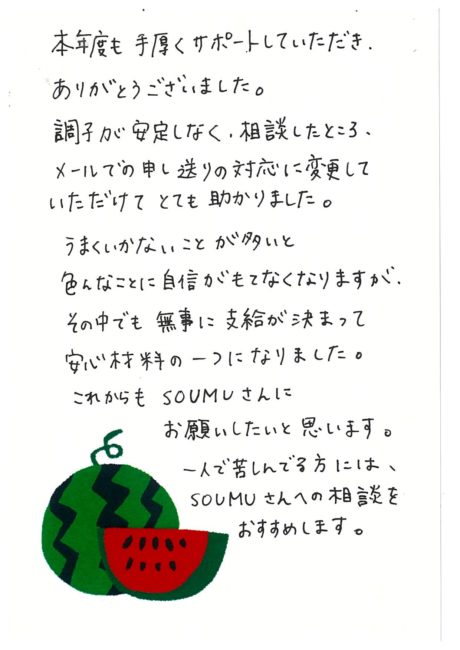 本年度も手厚くサポートしていただき、
ありがとうございました。
調子が安定しなく、相談したところ、
メールでの申し送りの対応に変更して
いただけてとても助かりました。
うまくいかないことが多いと
色んなことに自信がもてなくなりますが、
その中でも無事に支給が決まって
安心材料の一つになりました。
これからもSOUMUさんに
お願いしたいと思います。
一人で苦しんでる方には、
SOUMUさんへの相談を
おすすめします。